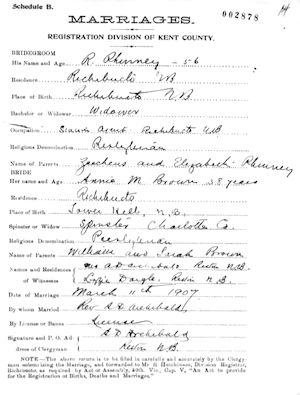 Schedule B.
002878
14
MARRIAGES.
REGISTRATION DIVISION OF KENT COUNTY.
BRIDEGROOM
His Name and Age R. Phinney - 56
Residence Richibucto NB
Place of Birth Richibucto N.B.
Bachelor or Widower Widower
Occupation Agent Richibucto NB
Religious Denomination Presbyterian
Name of Parents Zacheus and Elizabeth Phinney
BRIDE
Her name and Age Annie M Brown 38 years
Residence Richibucto
Place of Birth Tower Hill, N.B.
Spinster or Widow Spinster Charlotte Co.
Religious Denomination Presbyterian
Name of Parents William and Sarah Brown
Names and Residences Mrs A D Archibald Rexton N.B.
of Witnesses Daigle, Rexton N.B.
Date of Marriage March 11th 1907
By whom Married Rev. A D Archibald,
By License or Banns License
Signature and P. O. Ad A D Archibald
dress of Clergyman Rexton N.B.
NOTE—The above return is to be filled in carefully and accurately by the Clergy-
man solemnizing the Marriage, and forwarded to Mr R Hutchinson, Division Registrar,
Richibucto, as required by Act of Assembly, 40th Vic, Cap. V, "An Act to provide
for the Registration of Births, Deaths and Marriages."